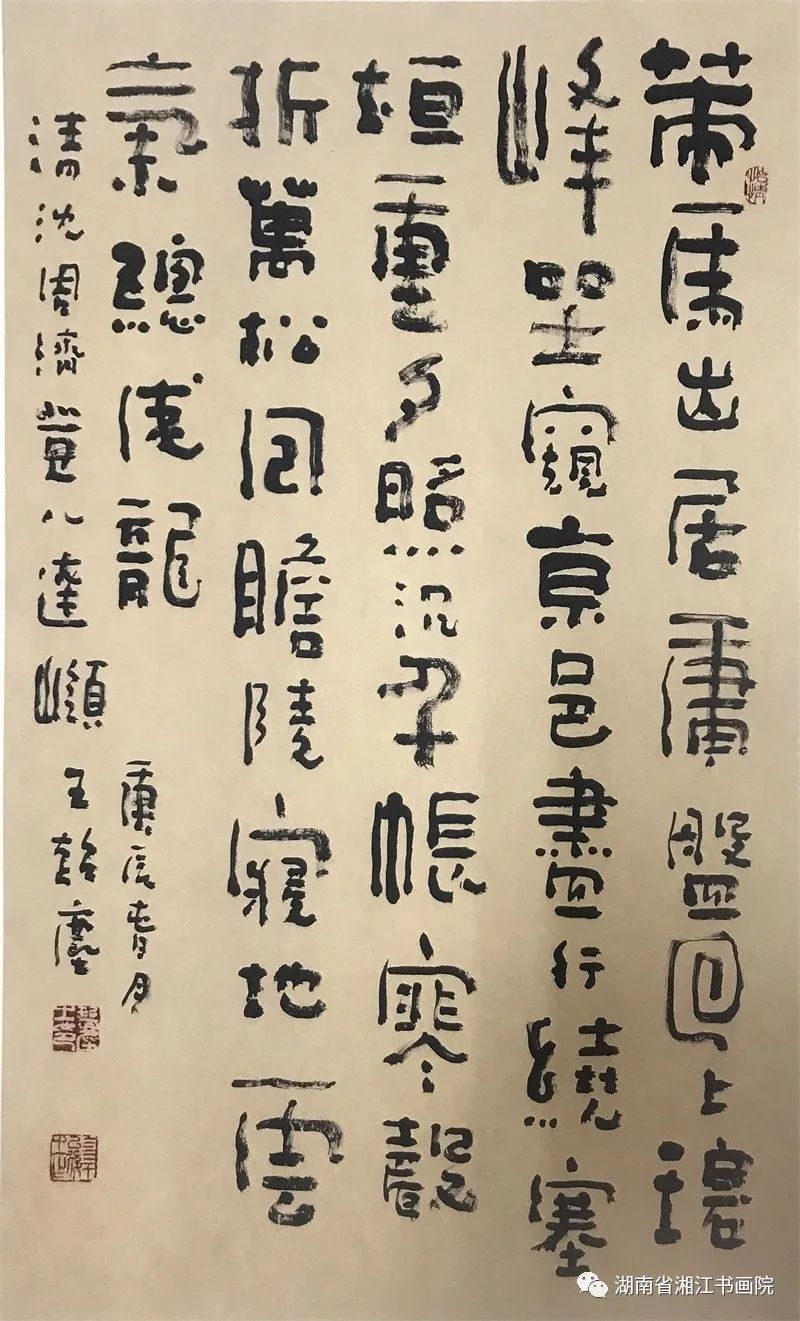 策馬出居庸盤回上
峰坐窺京邑盡行繞塞
垣重夕照沉千帳寒聲
折萬松回瞻陵寢地雲
氣總成龍
庚辰春月
清沈周濟登八達嶺
王
湖南省湘江书画院